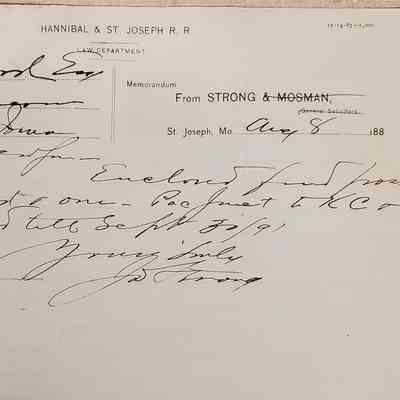 HANNIBAL & ST. JOSEPH R. R.
LAW DEPARTMENT.
Esq
Memorandum
From STRONG & MOSMAN,
General Solicitors.
Iowa
St. Joseph, Mo. Aug 8 188
Enclosed find
& one - Pac Junct to K C
till Sept 30/91
Yours truly
Strong